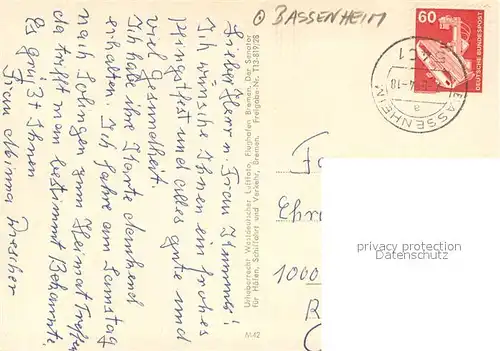 ⊙ BASSENHEIM
60
DEUTSCHE BUNDESPOST
BASSENHEIM
a
Lieber Herr u. Frau Stimmus!
Ich wünsche Ihnen ein frohes
Pfingstfest und alles gute und
viel Gesundheit.
Ich habe ihre Karte dankend
erhalten. Ich fahre am Samstag
nach Solingen zum Heimat Treffen
da trifft man bestimmt Bekannte.
Es grüßt Ihnen
Frau Minna Drescher
Urheberrecht Westdeutscher Luftfoto, Flughafen Bremen. Der Senator
für Häfen, Schiffahrt und Verkehr, Bremen. Freigabe-Nr. T13-819/28
Fa
Ehr
1000
privacy protection
Datenschutz